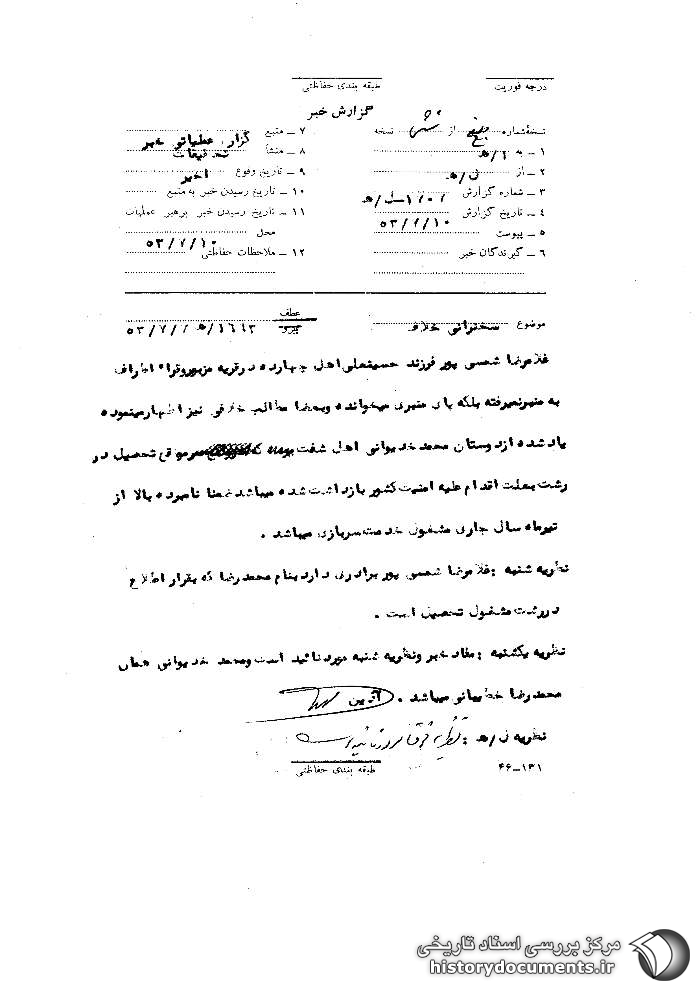 درجه فوریت
طبقه بندی حفاظتی
گزارش خبر
نسخهٔ شماره از شش نسخه
۱ ـ به
۲ ـ از
۳ ـ شماره گزارش
۴ ـ تاریخ گزارش
۵ ـ پیوست
۶ ـ گیرندگان خبر
۷ ـ منبع گزارش عملیاتی خبر
۸ ـ منشأ تحقیقات
۹ ـ تاریخ وقوع اخیر
۱۰ ـ تاریخ رسیدن خبر به منبع
۱۱ ـ تاریخ رسیدن خبر برهبر عملیات
محل
۱۲ ـ ملاحظات حفاظتی
موضوع سخنرانی خلاف
عطف
پیرو
غلامرضا شمسی پور فرزند حسینعلی اهل چهارده در قریه مزبور و قراء اطراف
به منبر نمیرفته بلکه پای منبری میخوانده و بعضا مطالب خلافی نیز اظهار مینموده
یاد شده از دوستان محمد خدیوانی اهل شفت بوده که در موقع تحصیل در
رشت بعلت اقدام علیه امنیت کشور بازداشت شده میباشد ضمنا نامبرده بالا از
تیرماه سال جاری مشغول خدمت سربازی میباشد .
نظریه شنبه : غلامرضا شمسی پور برادری دارد بنام محمدرضا که بقرار اطلاع
در رشت مشغول تحصیل است .
نظریه یکشنبه : مفاد خبر و نظریه شنبه مورد تائید است و محمد خدیوانی همان
محمدرضا میباشد . آذین
نظریه
طبقه بندی حفاظتی
۱۳۱ـ۴۶
مرکز بررسی اسناد تاریخی
historydocuments.ir